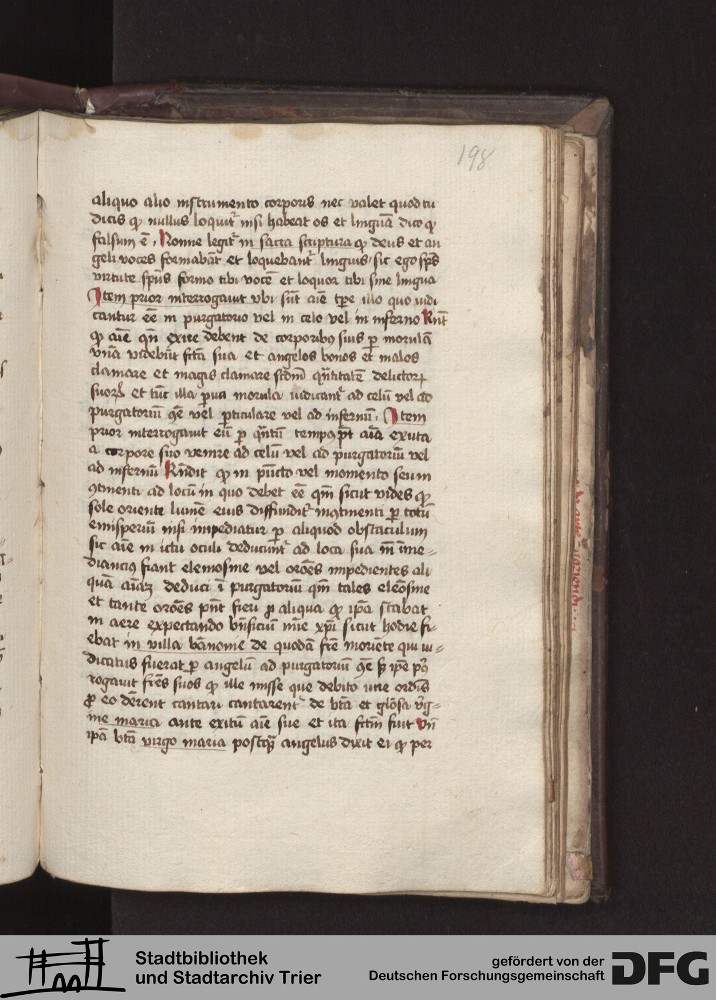 198
aliquo alio instrumento corporis nec valet quod tu
dicis qꝫ nullus loquit᷑ nisi habeat os et linguā dico qꝫ
falsum ē Nonne legit᷑ in sacra scriptura qꝫ deus et an
geli voces formabāt et loquebant᷑ linguis sic ego sp̄s
virtute sp̄us formo tibi vocē et loquor tibi sine lingua
Item prior interrogauit vbi sūt aīe tp̄e illo quo iudi
cantur eē in purgatorio vel in celo vel in inferno Rn̄t
qꝫ aīe qn̄ exire debent de corporibꝰ suis ꝑ morulā
vnā videbūt fc̄ā sua et angelos bonos et malos
clamare et magis clamare scdm̄ qn̄titatē delictoꝝ
suoꝝ et tūc illa ꝑua morula iudicant᷑ ad celū vel ad
purgatoriū gn̄e vel ꝑticulare vel ad infernū Item
prior interrogauit eū ꝑ qn̄tū tempꝰ pt̄ aīa exuta
a corpore suo venire ad celū vel ad purgatoriū vel
ad infernū Rn̄dit qꝫ in pūcto vel momento seu in
ꝯtinenti ad locū in quo debet eē qm̄ sicut vides qꝫ
sole oriente lumē eius diffundit᷑ inꝯtinenti ꝑ totū
emisperiū nisi impediatur ꝑ aliquod obstaculum
sic aīe in ictu oculi deducūt᷑ ad loca sua n̄ īme=
diancius fiant elemosine vel orōes impedientes ali
quā aīaꝫ deduci ī purgatoriū qm̄ tales eleōsine
et tante orōes pn̄t fieri ꝓ aliqua qꝫ ip̄a stabat
in aere expectando bn̄ficiū mīe xp̄i sicut hodie fi=
ebat in villa de quodā frē moriēte qui iu=
dicatus fuerat ꝑ angelū ad purgatoriū gn̄e ip̄e
rogauit frēs suos qꝫ ille misse que debito ordīs
ꝓ eo dēरent cantari cantarent᷑ de bt̄a et gl̄osa v̄gi=
ne maria ante exitū aīe sue et ita fc̄m̄ fuit vn̄
ip̄a bt̄a virgo maria postqꝫ angelus dixit ei qꝫ per
Stadtbibliothek
und Stadtarchiv Trier
gefördert von der
Deutschen Forschungsgemeinschaft
DFG